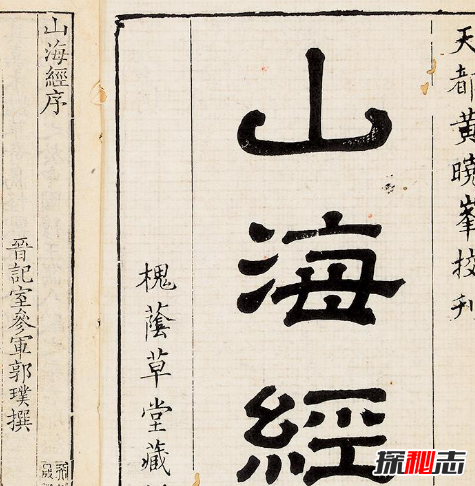 天都黄曉峯校刋
山海經
槐蔭草堂藏
山海經序
晉記室參軍郭璞撰
探秘志
www.tanmizhi.com